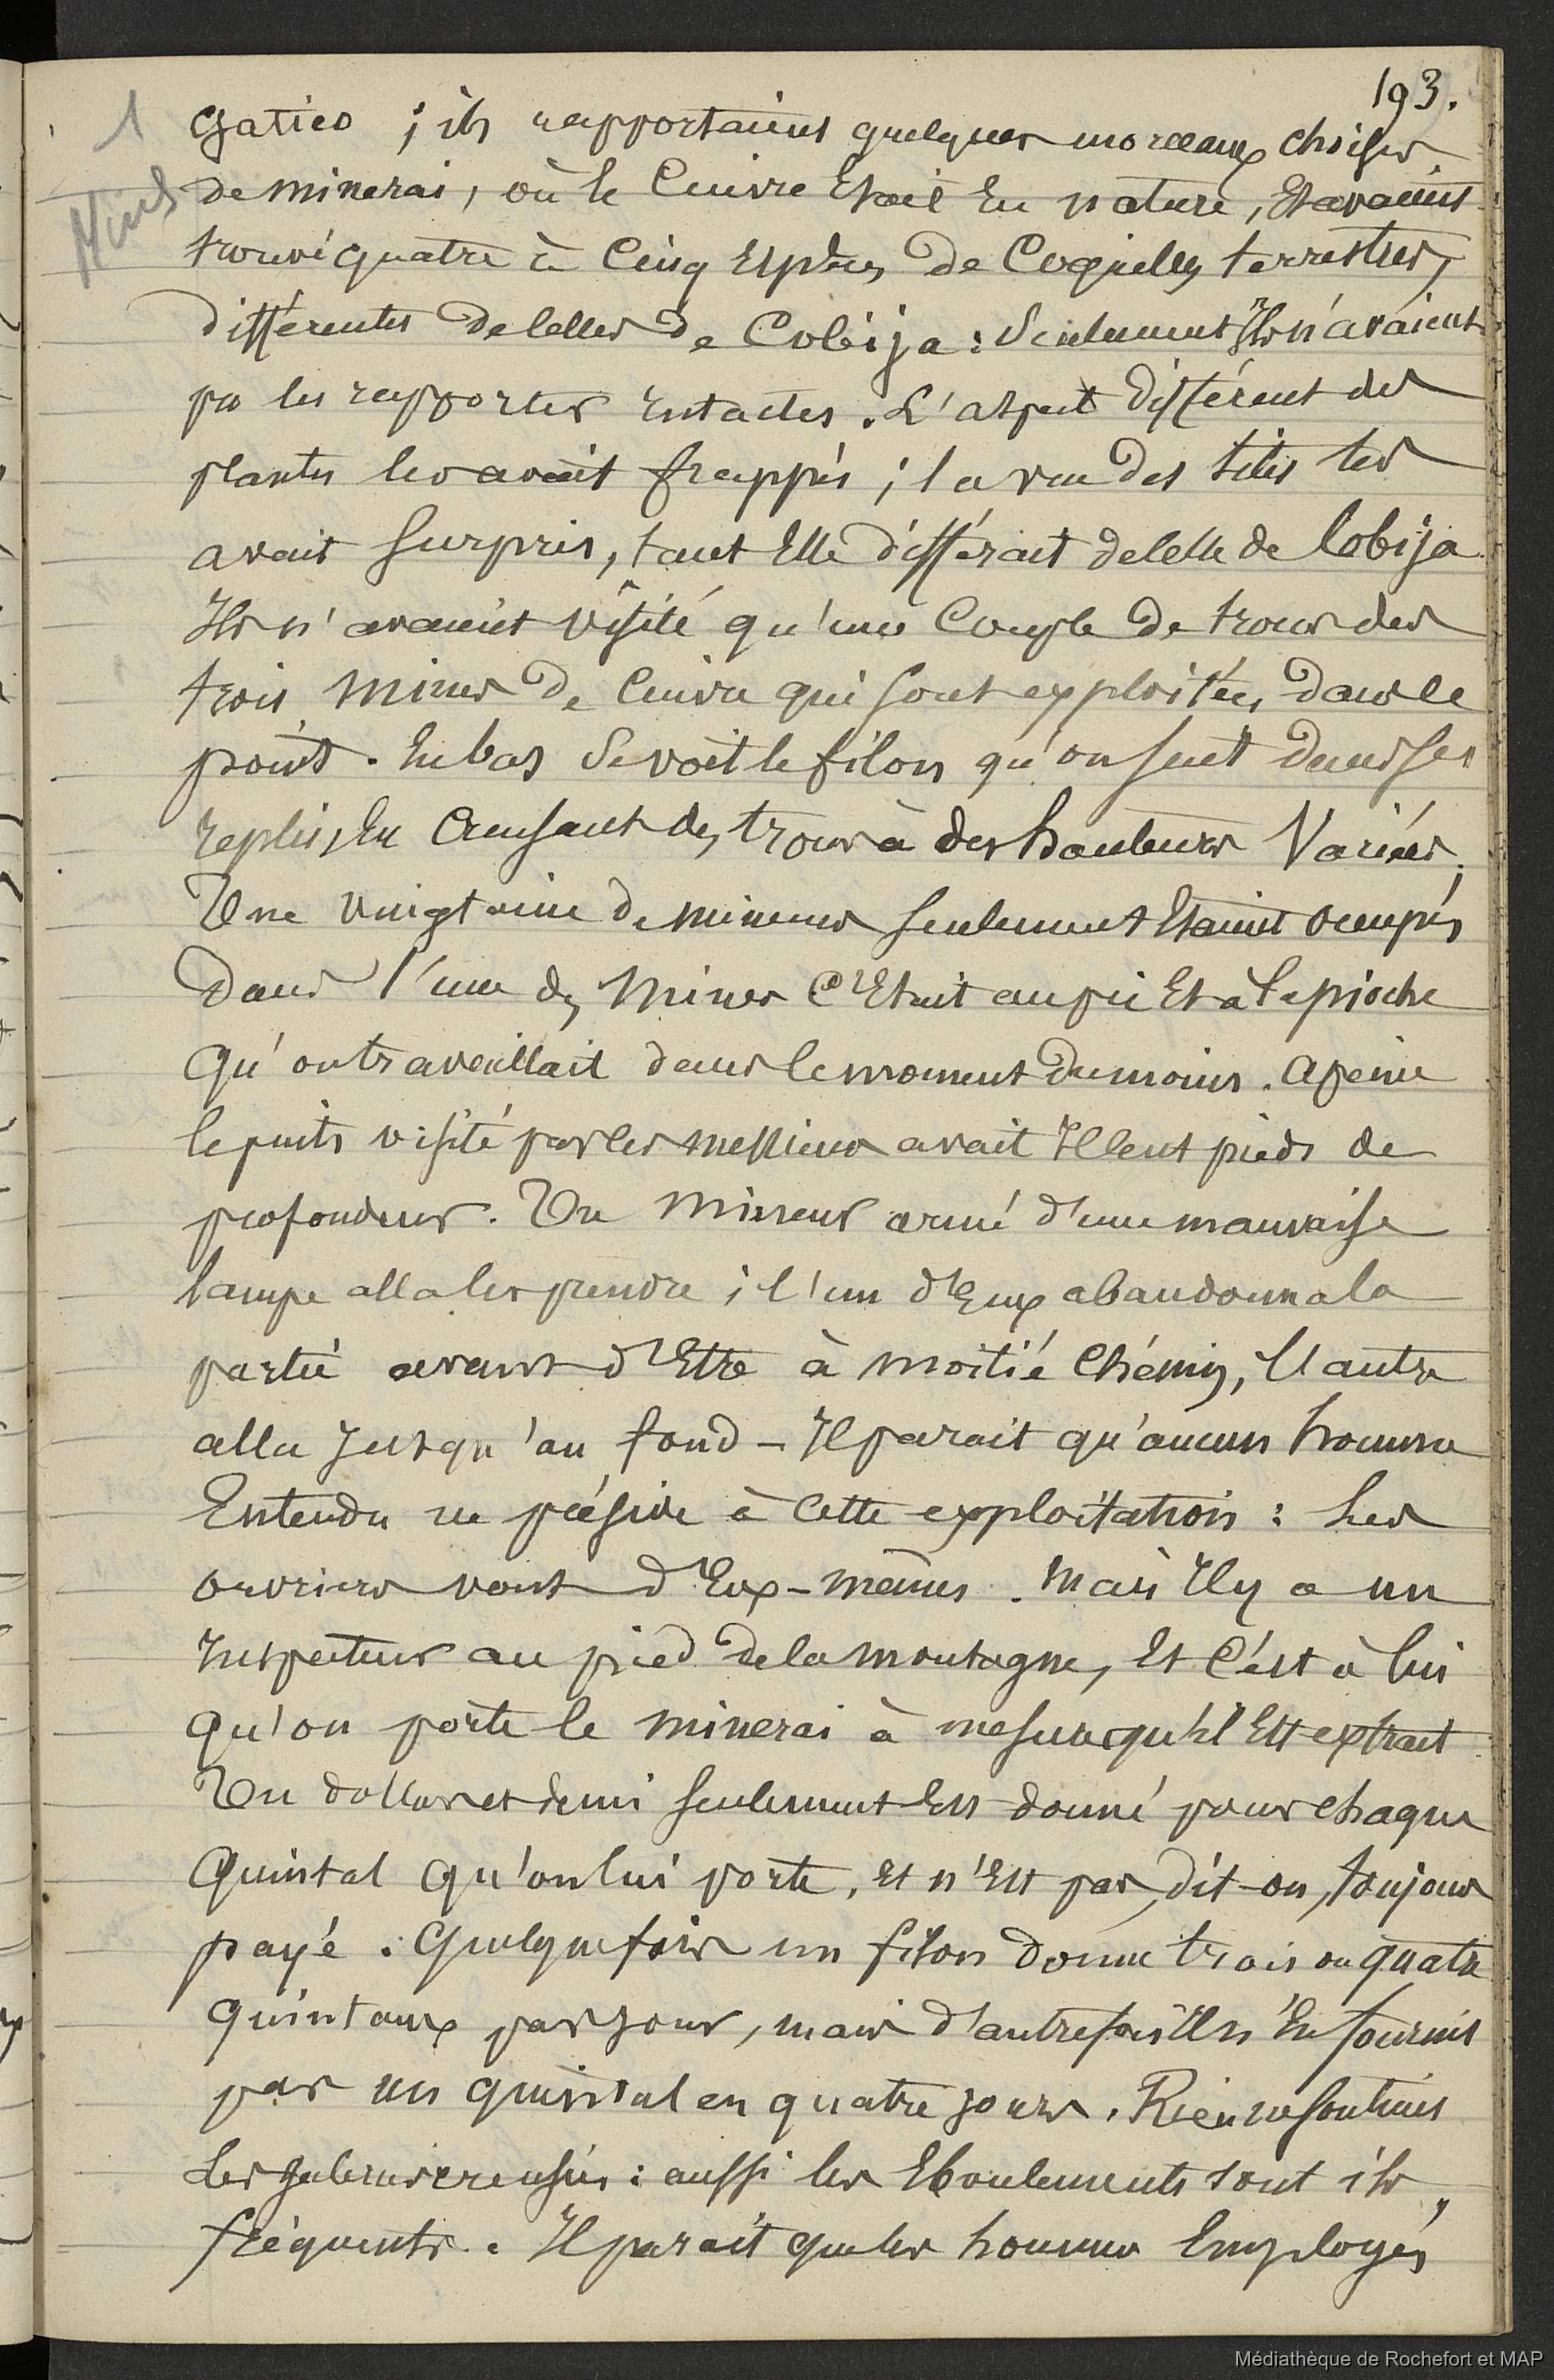 193.
1
Gatico ; ils rapportaient quelques morceaux choisis
Mines
de minerai, où le Cuivre Etait En nature, Et avaient
trouvé quatre à Cinq Espèces de Coquilles terrestres,
différentes de Celles de Cobija : Seulement Ils n'avaient
pu les rapporter intactes. L'aspect différent des
plantes les avait frappés ; la vue des sites les
avait surpris, tant Elle différait de Celle de Cobija.
Ils n'avaient visité qu'une Couple de trous des
trois Mines de Cuivre qui sont exploitées dans ce
point. En bas Se voit le filon qu'on suit dans ses
replis, En Creusant des trous à des hauteurs Variées.
Une vingtaine de mineurs seulement Etaient occupés
Dans l'une des Mines C'Etait au pic Et à la pioche
qu'on travaillait dans le moment du moins. A peine
le puits visité par ces messieurs avait Il Cent pieds de
profondeur. Un Mineur armé d'une mauvaise
lampe alla les prendre ; l'un d'Eux abandonna la
partie avant d'Etre à moitié Chemin, l'autre
alla Jusqu'au fond - Il parait qu'aucun homme
Entendu ne préside à Cette exploitation : Les
ouvriers vont d'Eux-mêmes. Mais Il y a un
Inspecteur au pied de la montagne, Et C'est à lui
qu'on porte le minerai à mesure qu'il Est extrait.
Un dollar et demi seulement Est donné pour chaque
Quintal qu'on lui porte, Et n'Est pas, dit-on, toujours
payé. Quelquefois un filon donne trois ou quatre
quintaux par Jour, mais d'autrefois Il n'En fournit
pas un quintal en quatre Jours. Rien ne soutient
Les galeries creusées : aussi les Eboulements sont ils
fréquents. Il parait que les hommes Employés
Médiathèque de Rochefort et MAP